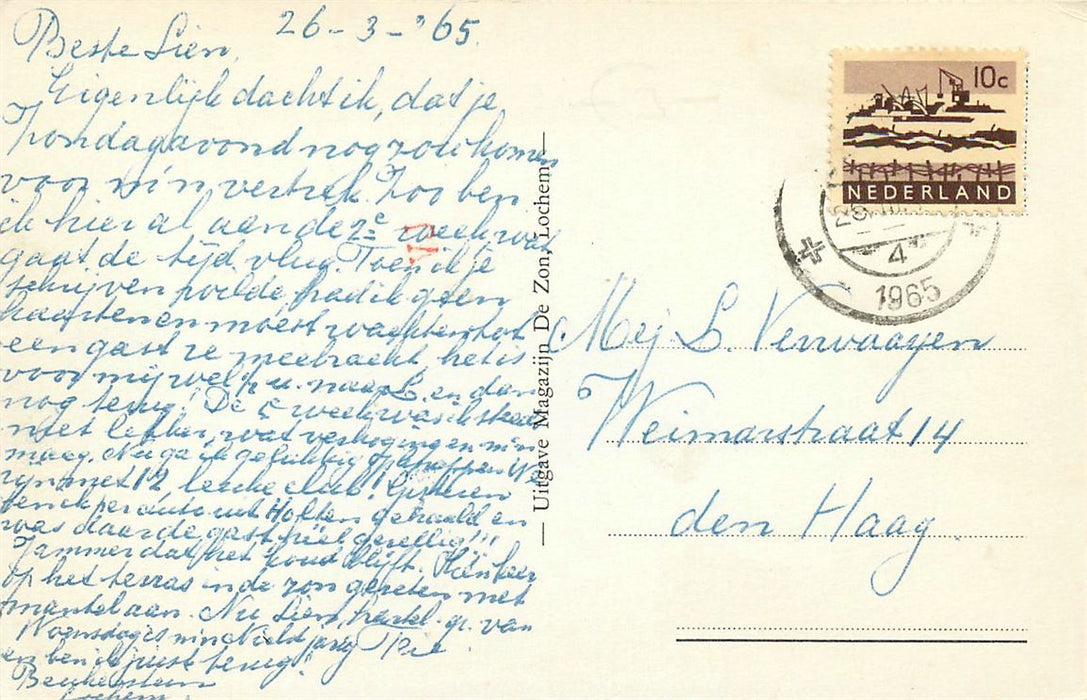 26-3-'65.
Beste Lien,
Eigenlijk dacht ik, dat je
Zondagavond nog zou komen
voor m'n vertrek. Zoo ben
ik hier al aan de 2e week, wat
gaat de tijd vlug. Toen ik je
schrijven wilde, had ik geen
kaarten en moest wachten tot
een gast ze meebracht, het is
voor mij wel u. naar L. en dan
nog terug! De week was ik
niet lekker, wat verhoging en m'n
maag. Nu ga ik gelukkig
zijn met 12 leuke club! Gisteren
ben ik per auto uit Holten gehaald en
was daar de gast heel gezellig!!!
Jammer dat het koud blijft. Eén keer
op het terras in de zon gezeten met
mantel aan. Nu Lien, hartel. gr. van
Woensdag is m'n jarig
en ben ik juist terug!
Beukenstein
Lochem.
— Uitgave Magazijn De Zon, Lochem —
10c
NEDERLAND
4
1965
Mej L. Verwaayen
Weimarstraat 14
den Haag.